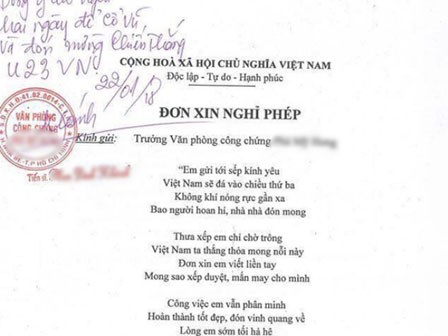 hai ngày để cổ vũ
và đón mừng chiến thắng
U23 VN.
22/01/18
CỘNG HOÀ XÃ HỘI CHỦ NGHĨA VIỆT NAM
Độc lập - Tự do - Hạnh phúc
ĐƠN XIN NGHỈ PHÉP
VĂN PHÒNG
CÔNG CHỨNG
Kính gửi: Trưởng Văn phòng công chứng
Tiến sĩ
"Em gửi tới sếp kính yêu
Việt Nam sẽ đá vào chiều thứ ba
Không khí nóng rực gần xa
Bao người hoan hỉ, nhà nhà đón mong
Thưa xếp em chỉ chờ trông
Việt Nam ta thắng thỏa mong nỗi này
Đơn xin em viết liền tay
Mong sao xếp duyệt, mắn may cho mình
Công việc em vẫn phân minh
Hoàn thành tốt đẹp, đón vinh quang về
Lòng em sớm tối hả hê